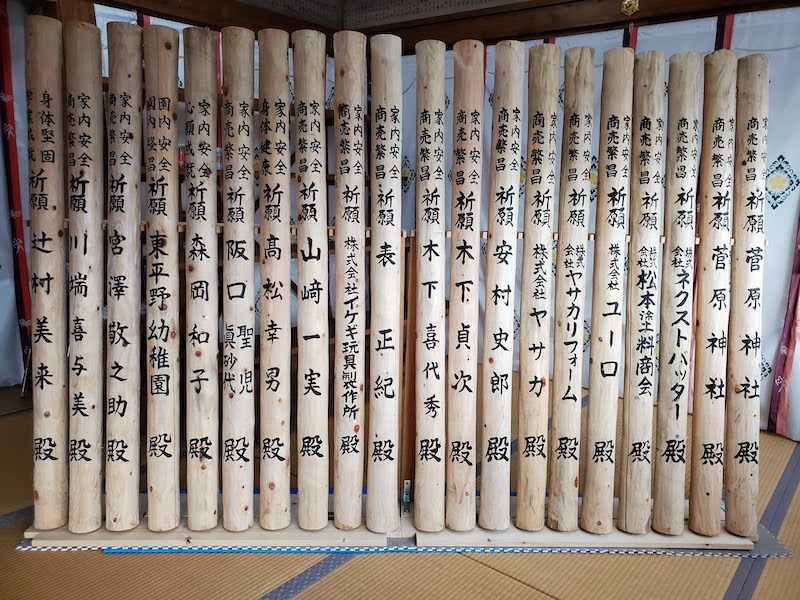 家内安全 商売繁昌 祈願 菅原神社 殿
家内安全 商売繁昌 祈願 菅原神社 殿
家内安全 商売繁昌 祈願 株式会社 ネクストバッター 殿
家内安全 商売繁昌 祈願 株式会社 松本塗料商会 殿
家内安全 商売繁昌 祈願 株式会社 ユーロ 殿
家内安全 商売繁昌 祈願 株式会社 ヤサカリフォーム 殿
家内安全 商売繁昌 祈願 株式会社 ヤサカ 殿
家内安全 商売繁昌 祈願 安村史郎 殿
家内安全 商売繁昌 祈願 木下貞次 殿
家内安全 商売繁昌 祈願 木下喜代秀 殿
家内安全 商売繁昌 祈願 表正紀 殿
家内安全 商売繁昌 祈願 株式会社イケギ玩具製作所 殿
家内安全 商売繁昌 祈願 山﨑一実 殿
家内安全 身体健康 祈願 高松幸男 殿
家内安全 商売繁昌 祈願 阪口 聖児 眞砂代 殿
家内安全 心願成就 祈願 森岡和子 殿
園内安全 園内繁昌 祈願 東平野幼稚園 殿
家内安全 商売繁昌 祈願 宮澤敬之助 殿
家内安全 商売繁昌 祈願 川端喜与美 殿
身体堅固 学業成就 祈願 辻村美来 殿